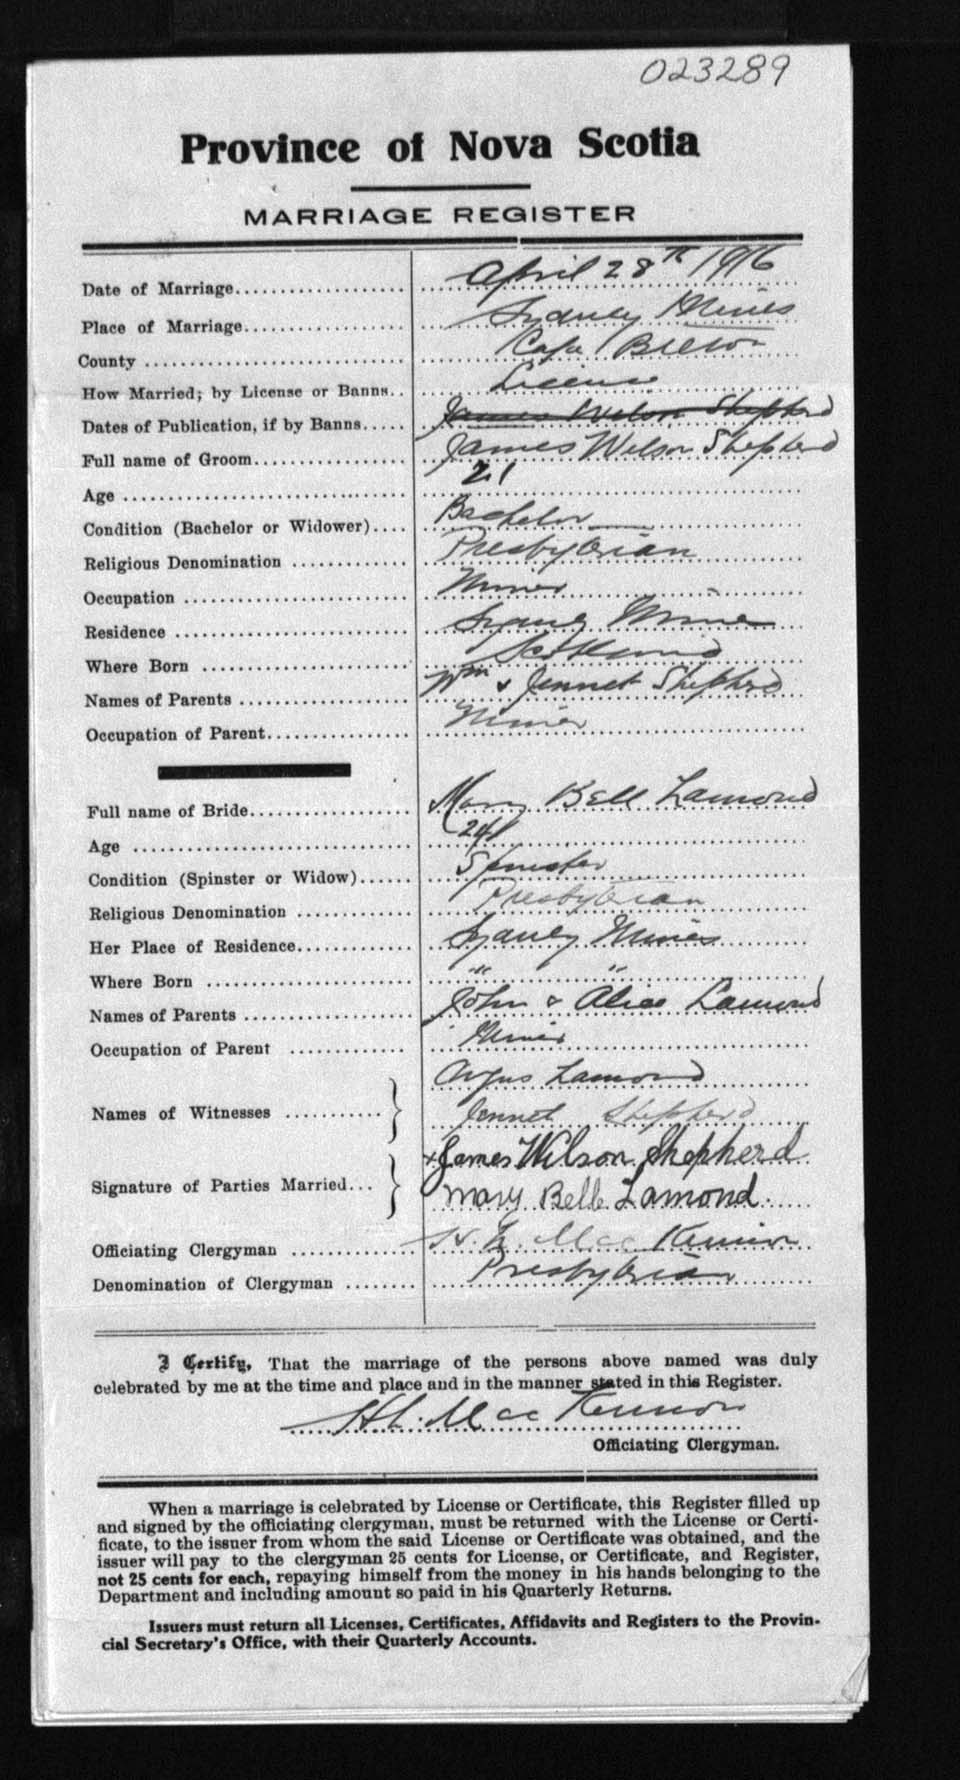 023289
Province of Nova Scotia
MARRIAGE REGISTER
Date of Marriage.................... April 28th 1916
Place of Marriage.................. Sydney Mines
County ............................. Cape Breton
How Married; by License or Banns.. License
Dates of Publication, if by Banns..... James Wilson Shepherd
Full name of Groom................. James Wilson Shepherd
Age ............................... 21
Condition (Bachelor or Widower).... Bachelor
Religious Denomination ............. Presbyterian
Occupation ......................... Miner
Residence .......................... Sydney Mines
Where Born ........................ Scotland
Names of Parents ................... Wm & Jennet Shepherd
Occupation of Parent................ Miner
Full name of Bride.................. Mary Bell Lamond
Age ................................
Condition (Spinster or Widow)...... Spinster
Religious Denomination ............. Presbyterian
Her Place of Residence.............. Sydney Mines
Where Born ........................ " "
Names of Parents .................. John & Alice Lamond
Occupation of Parent ............. Miner
Angus Lamond
Names of Witnesses ...........
Jennet Shepherd
x James Wilson Shepherd
Signature of Parties Married...
Mary Belle Lamond.
Officiating Clergyman .............. H. L. MacKinnon
Denomination of Clergyman ........ Presbyterian
I Certify, That the marriage of the persons above named was duly
celebrated by me at the time and place and in the manner stated in this Register.
H L. MacKinnon
Officiating Clergyman.
When a marriage is celebrated by License or Certificate, this Register filled up
and signed by the officiating clergyman, must be returned with the License or Certi-
ficate, to the issuer from whom the said License or Certificate was obtained, and the
issuer will pay to the clergyman 25 cents for License, or Certificate, and Register,
not 25 cents for each, repaying himself from the money in his hands belonging to the
Department and including amount so paid in his Quarterly Returns.
Issuers must return all Licenses, Certificates, Affidavits and Registers to the Provin-
cial Secretary's Office, with their Quarterly Accounts.